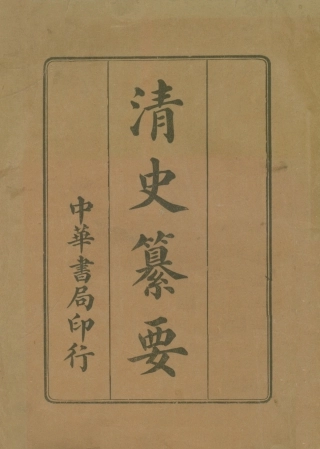 清史纂要
中華書局印行